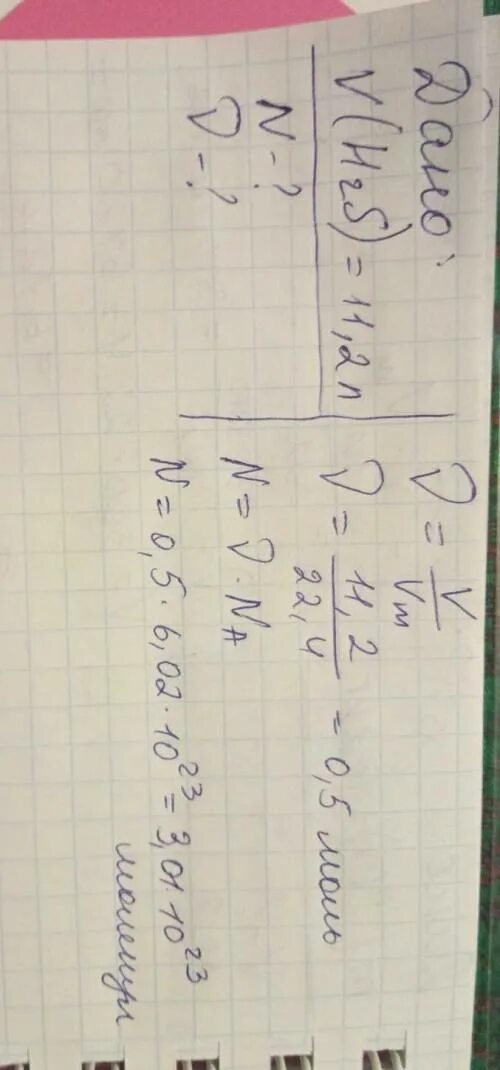 Дано:
V(H2S) = 11,2 л
N - ?
ν - ?
ν = V/Vm
ν = 11,2/22,4 = 0,5 моль
N = ν · NA
N = 0,5 · 6,02 · 10^23 = 3,01 · 10^23
молекул